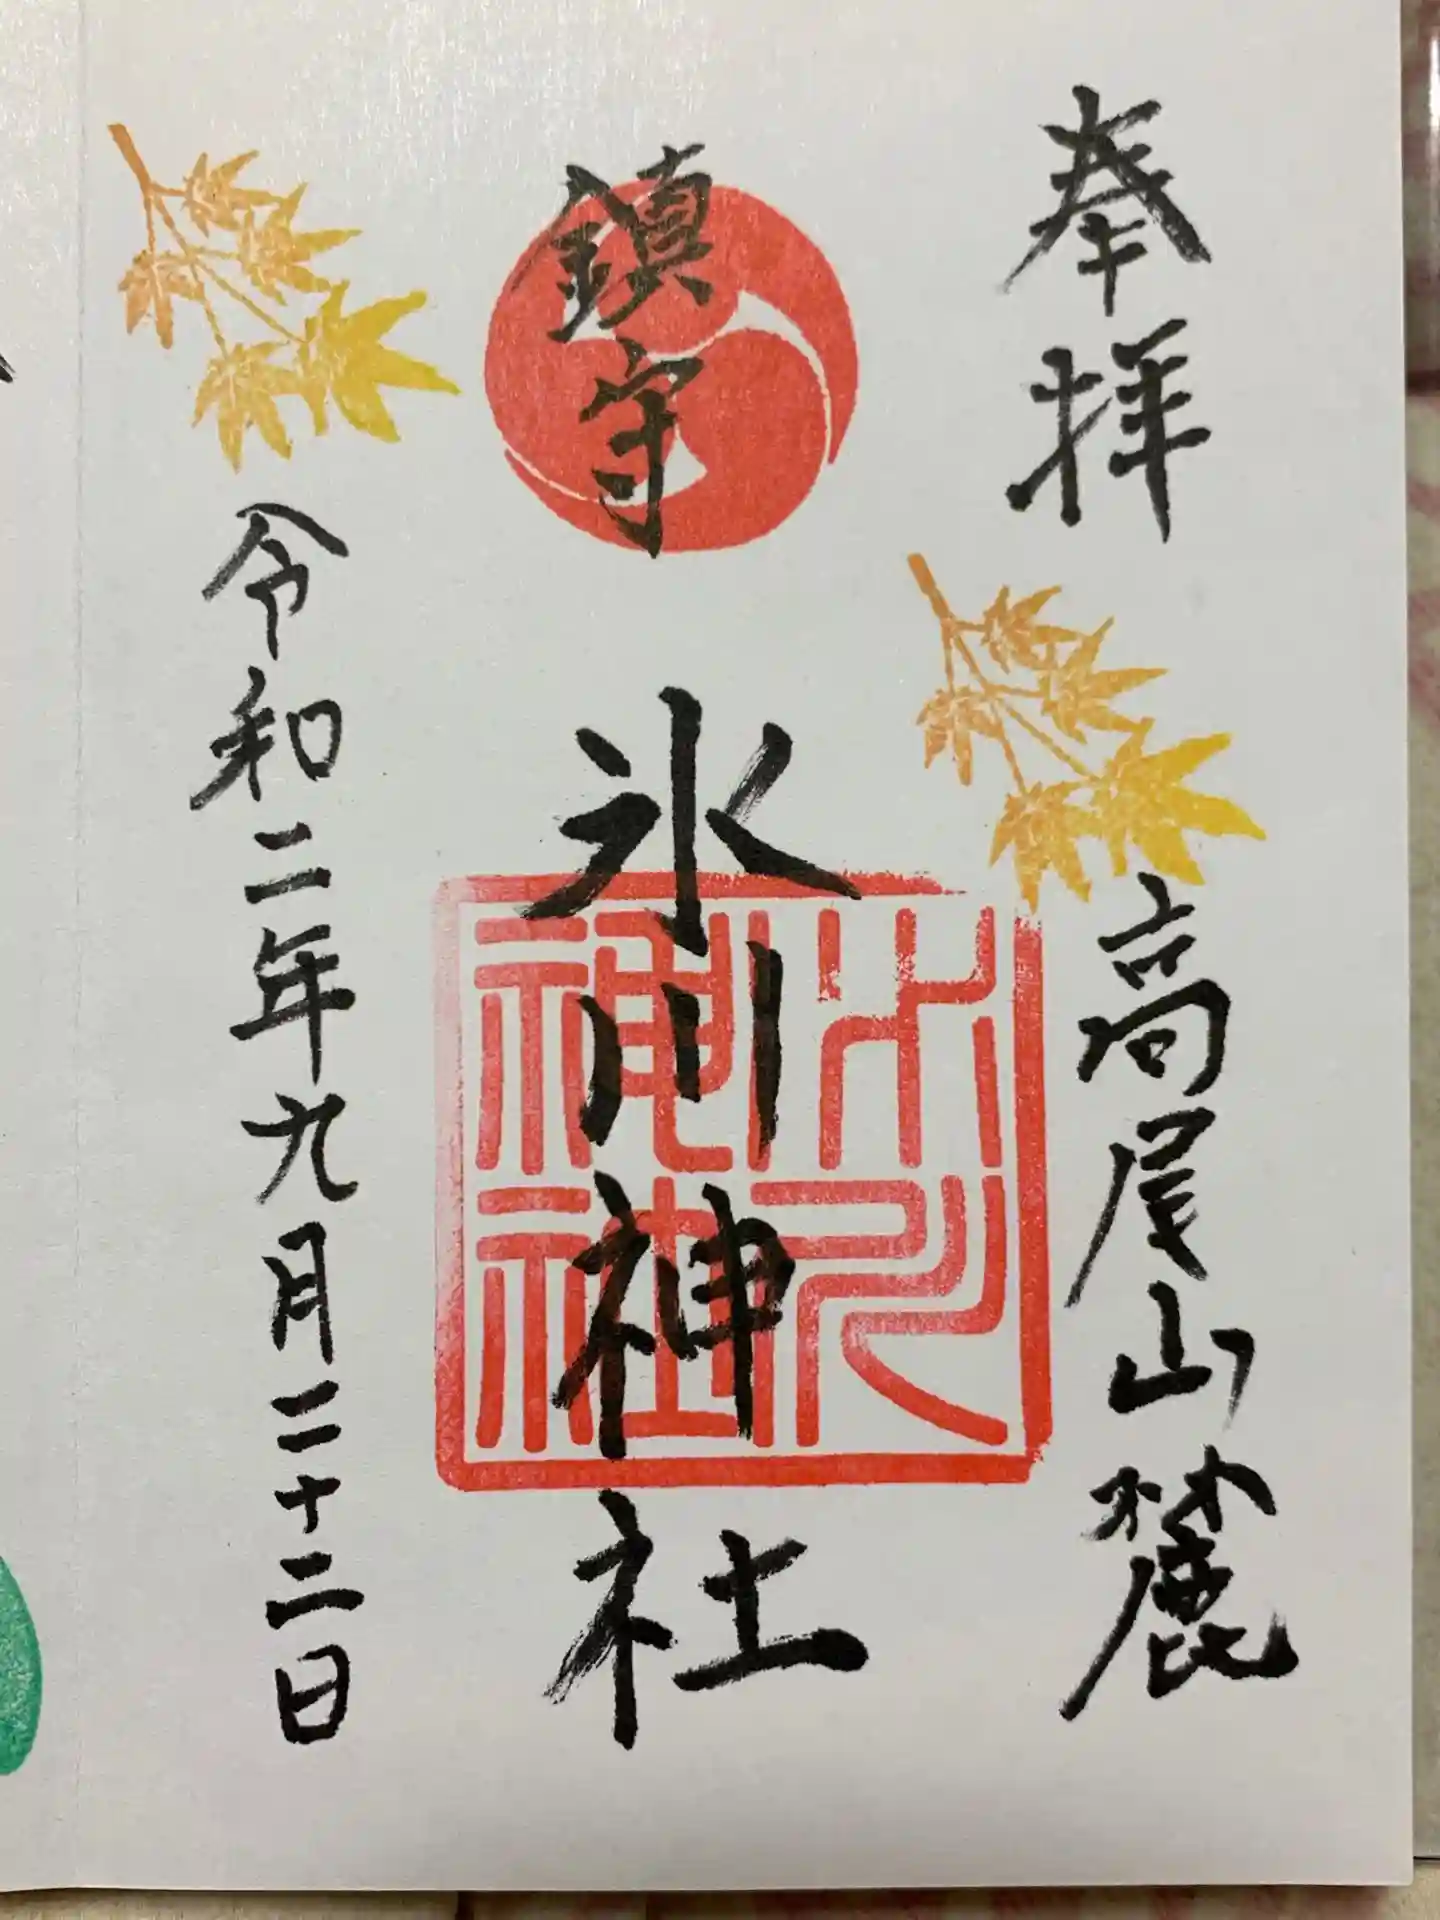 奉拝
高尾山麓
鎮守
氷川神社
氷川神社
令和二年九月二十二日